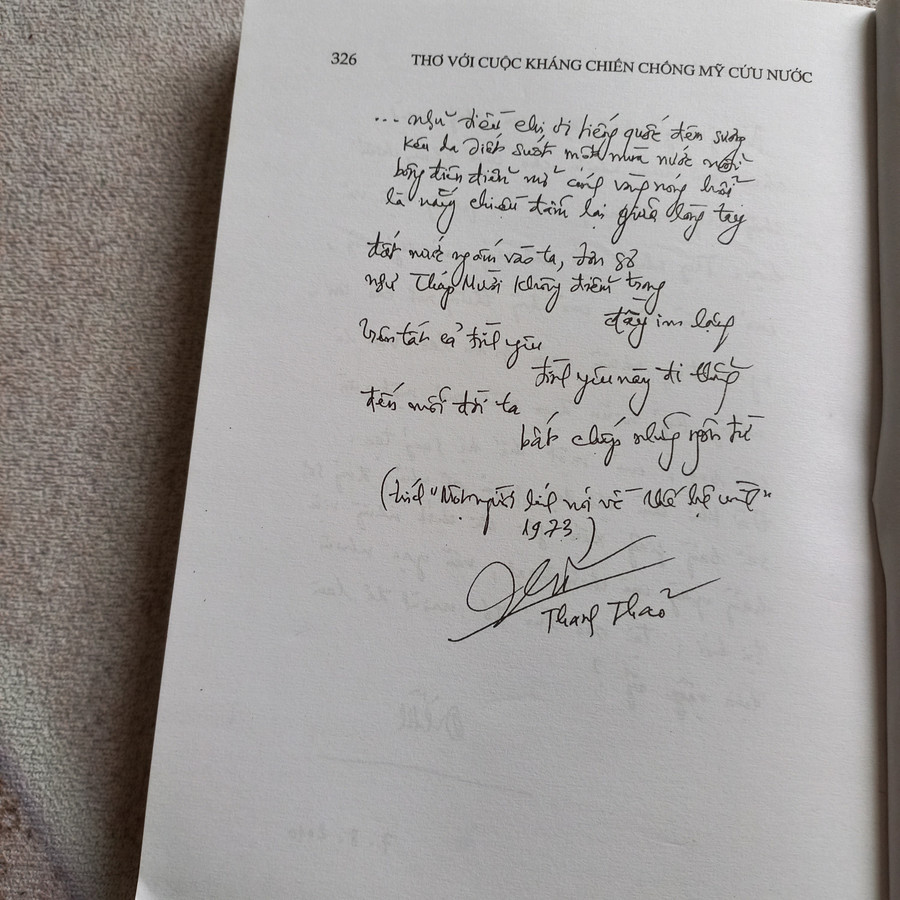 326
THƠ VỚI CUỘC KHÁNG CHIẾN CHỐNG MỸ CỨU NƯỚC
... như điều chi đi tiếng quốc đêm sương
kêu da diết suốt một mùa nước nổi
bông điên điển mở cánh vàng nóng hổi
là nắng chiều đằm lại giữa lòng tay
đất nước ngấm vào ta, đơn sơ
như Tháp Mười không điểm trang
đầy im lặng
trên tất cả tình yêu
tình yêu này đi thẳng
đến mỗi đời ta
bất chấp những ngôn từ
(trích "Một người lính nói về thế hệ mình"
1973)
Thanh Thảo